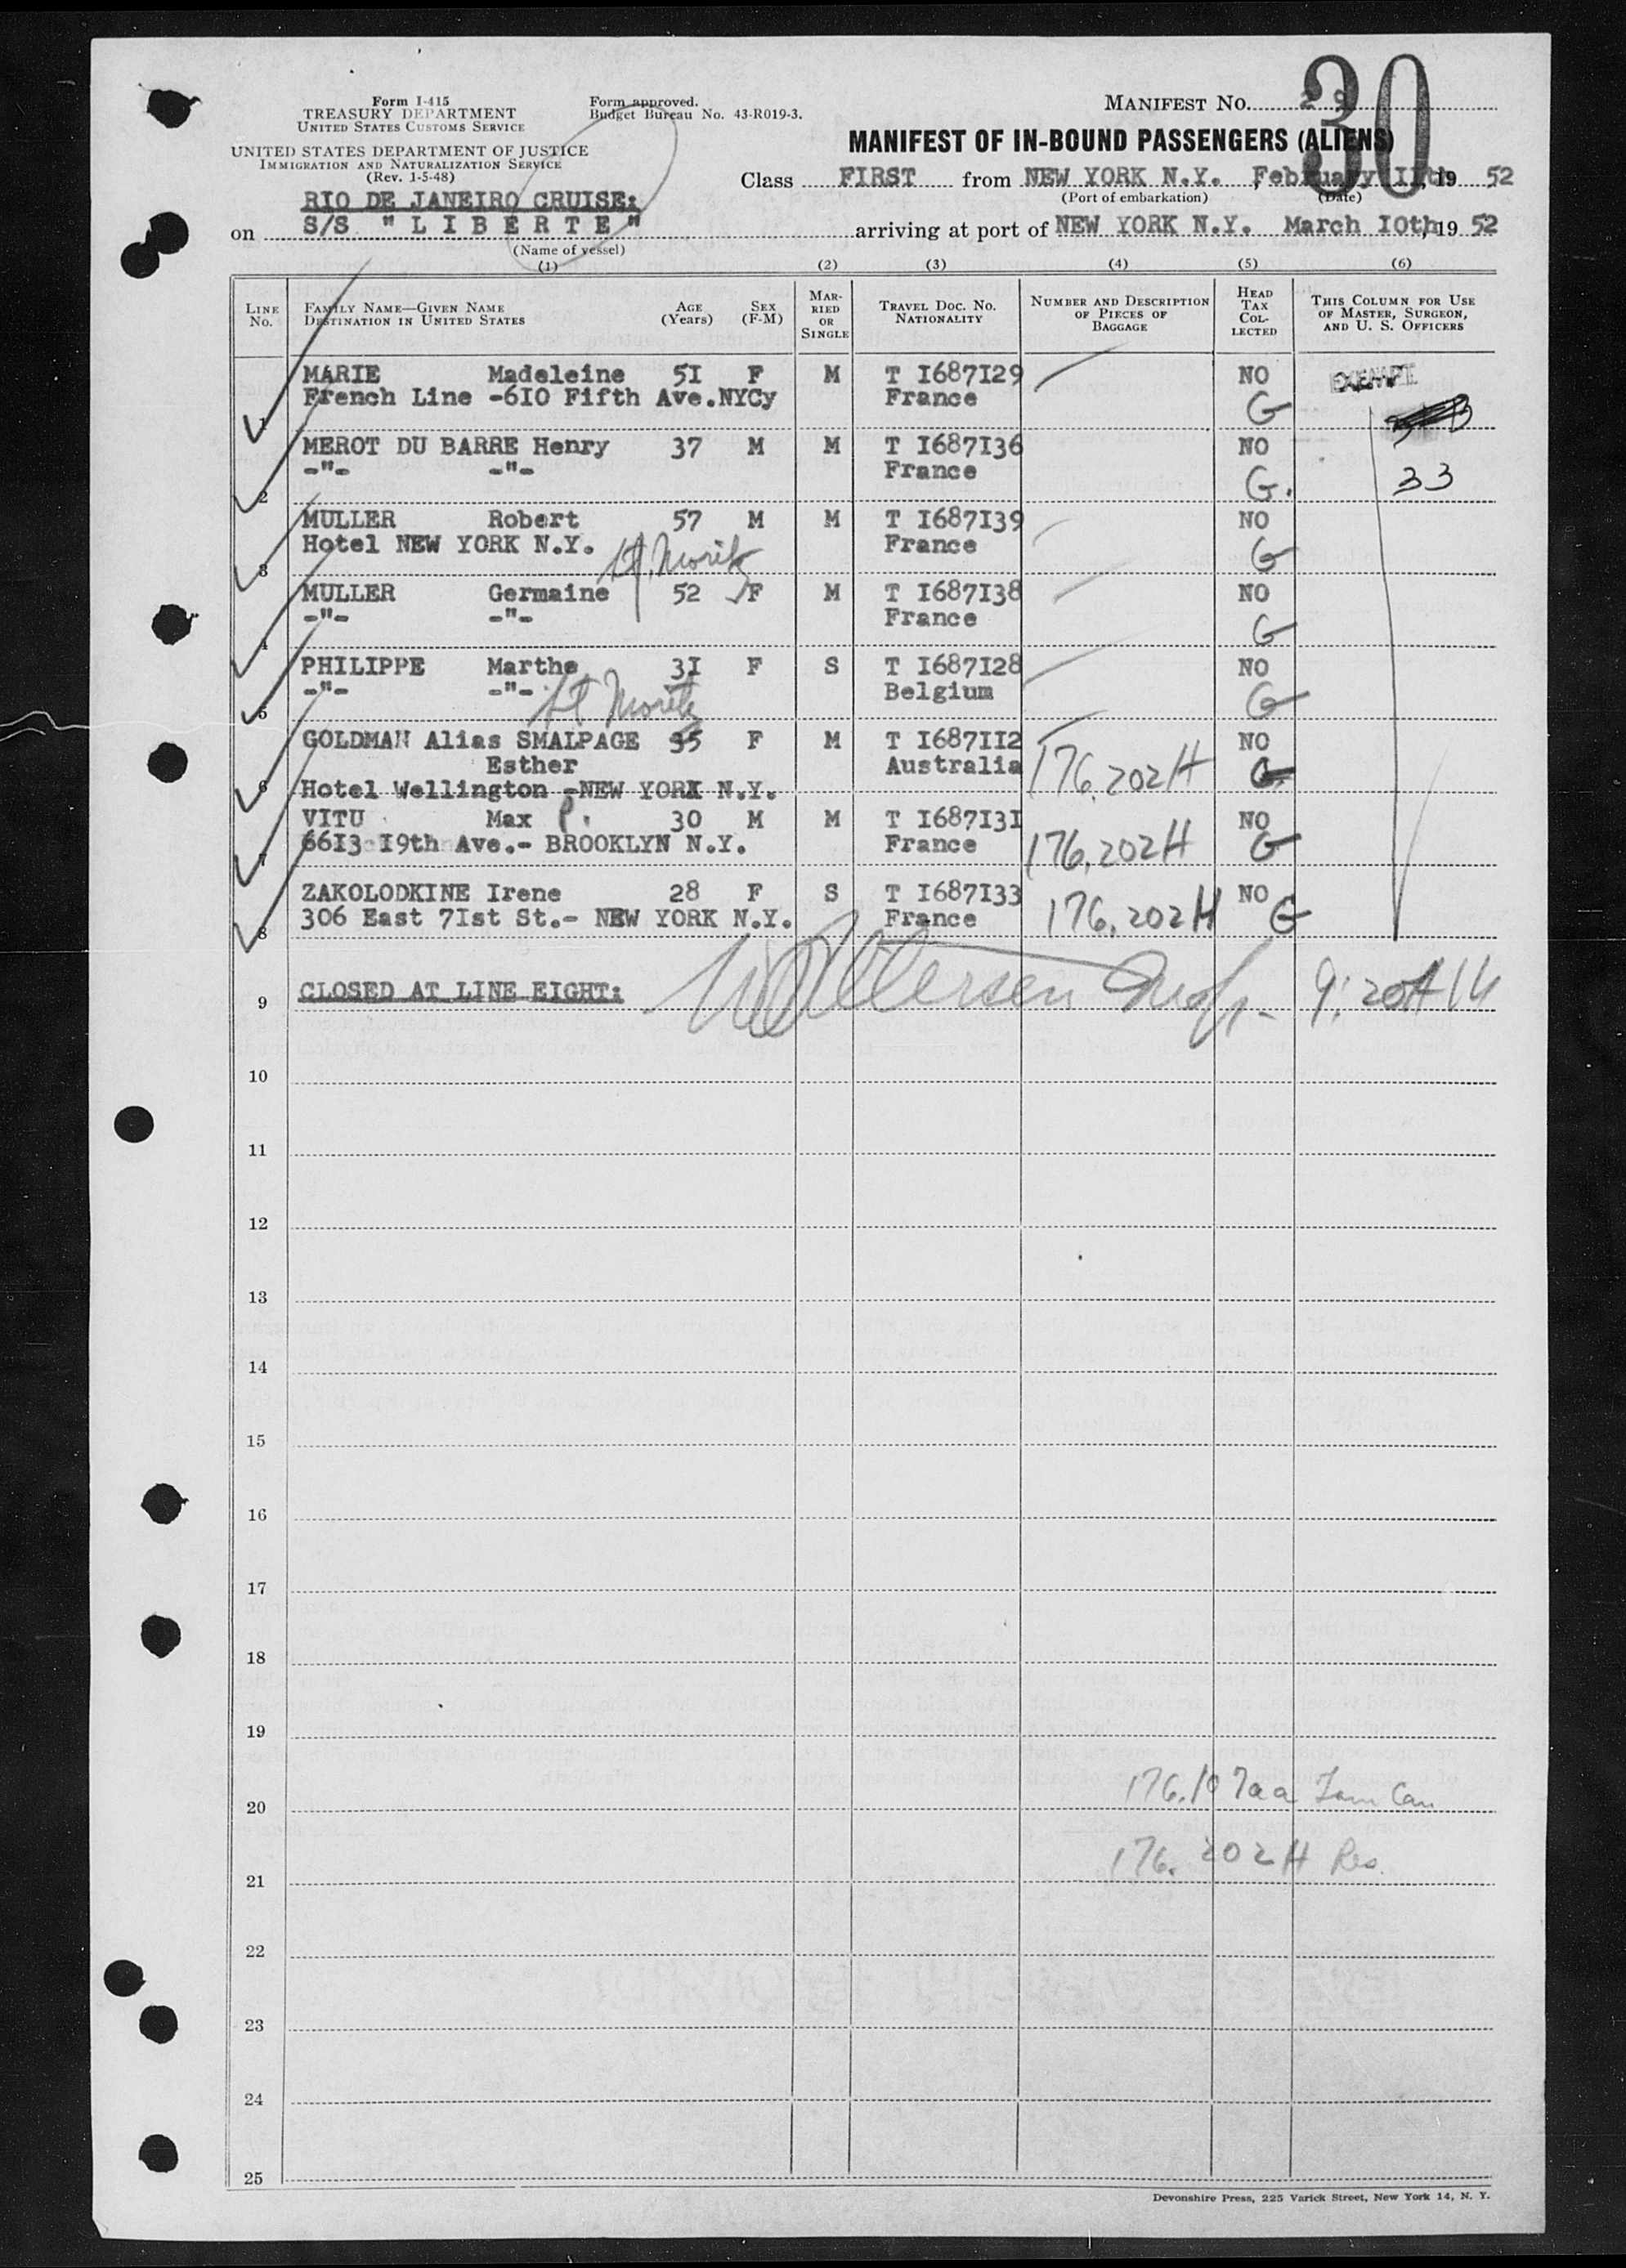 30
Form I-415
TREASURY DEPARTMENT
UNITED STATES CUSTOMS SERVICE
UNITED STATES DEPARTMENT OF JUSTICE
IMMIGRATION AND NATURALIZATION SERVICE
(Rev. 1-5-48)
Form approved.
Budget Bureau No. 43-R019-3.
MANIFEST NO. 29
MANIFEST OF IN-BOUND PASSENGERS (ALIENS)
Class FIRST from NEW YORK N.Y. , February IIth, 19 52
(Port of embarkation) (Date)
RIO DE JANEIRO CRUISE:
on S/S "LIBERTE" arriving at port of NEW YORK N.Y. March IOth, 19 52
(Name of vessel)
(1) (2) (3) (4) (5) (6)
LINE No. FAMILY NAME—GIVEN NAME DESTINATION IN UNITED STATES AGE (Years) SEX (F-M) MARRIED OR SINGLE TRAVEL DOC. NO. NATIONALITY NUMBER AND DESCRIPTION OF PIECES OF BAGGAGE HEAD TAX COLLECTED THIS COLUMN FOR USE OF MASTER, SURGEON, AND U. S. OFFICERS
MARIE Madeleine 5I F M T I687I29 NO
French Line -6IO Fifth Ave.NYCy France
1 G
MEROT DU BARRE Henry 37 M M T I687I36 NO
-"- -"- France
2 G. 33
MULLER Robert 57 M M T I687I39 NO
Hotel NEW YORK N.Y. St. Moritz France
3 G
MULLER Germaine 52 F M T I687I38 NO
-"- -"- France
4 G
PHILIPPE Marthe 3I F S T I687I28 NO
-"- -"- St Moritz Belgium
5 G
GOLDMAN Alias SMALPAGE 35 F M T I687II2 NO
Esther Australia 176.202H G
6 Hotel Wellington -NEW YORK N.Y.
VITU Max P. 30 M M T I687I3I NO
66I3 I9th Ave.- BROOKLYN N.Y. France 176.202H G
7
ZAKOLODKINE Irene 28 F S T I687I33 NO
306 East 7Ist St.- NEW YORK N.Y. France 176.202H G
8
9 CLOSED AT LINE EIGHT:
10
11
12
13
14
15
16
17
18
19
176.107aa
20
176.202H Res.
21
22
23
24
25
Devonshire Press, 225 Varick Street, New York 14, N. Y.